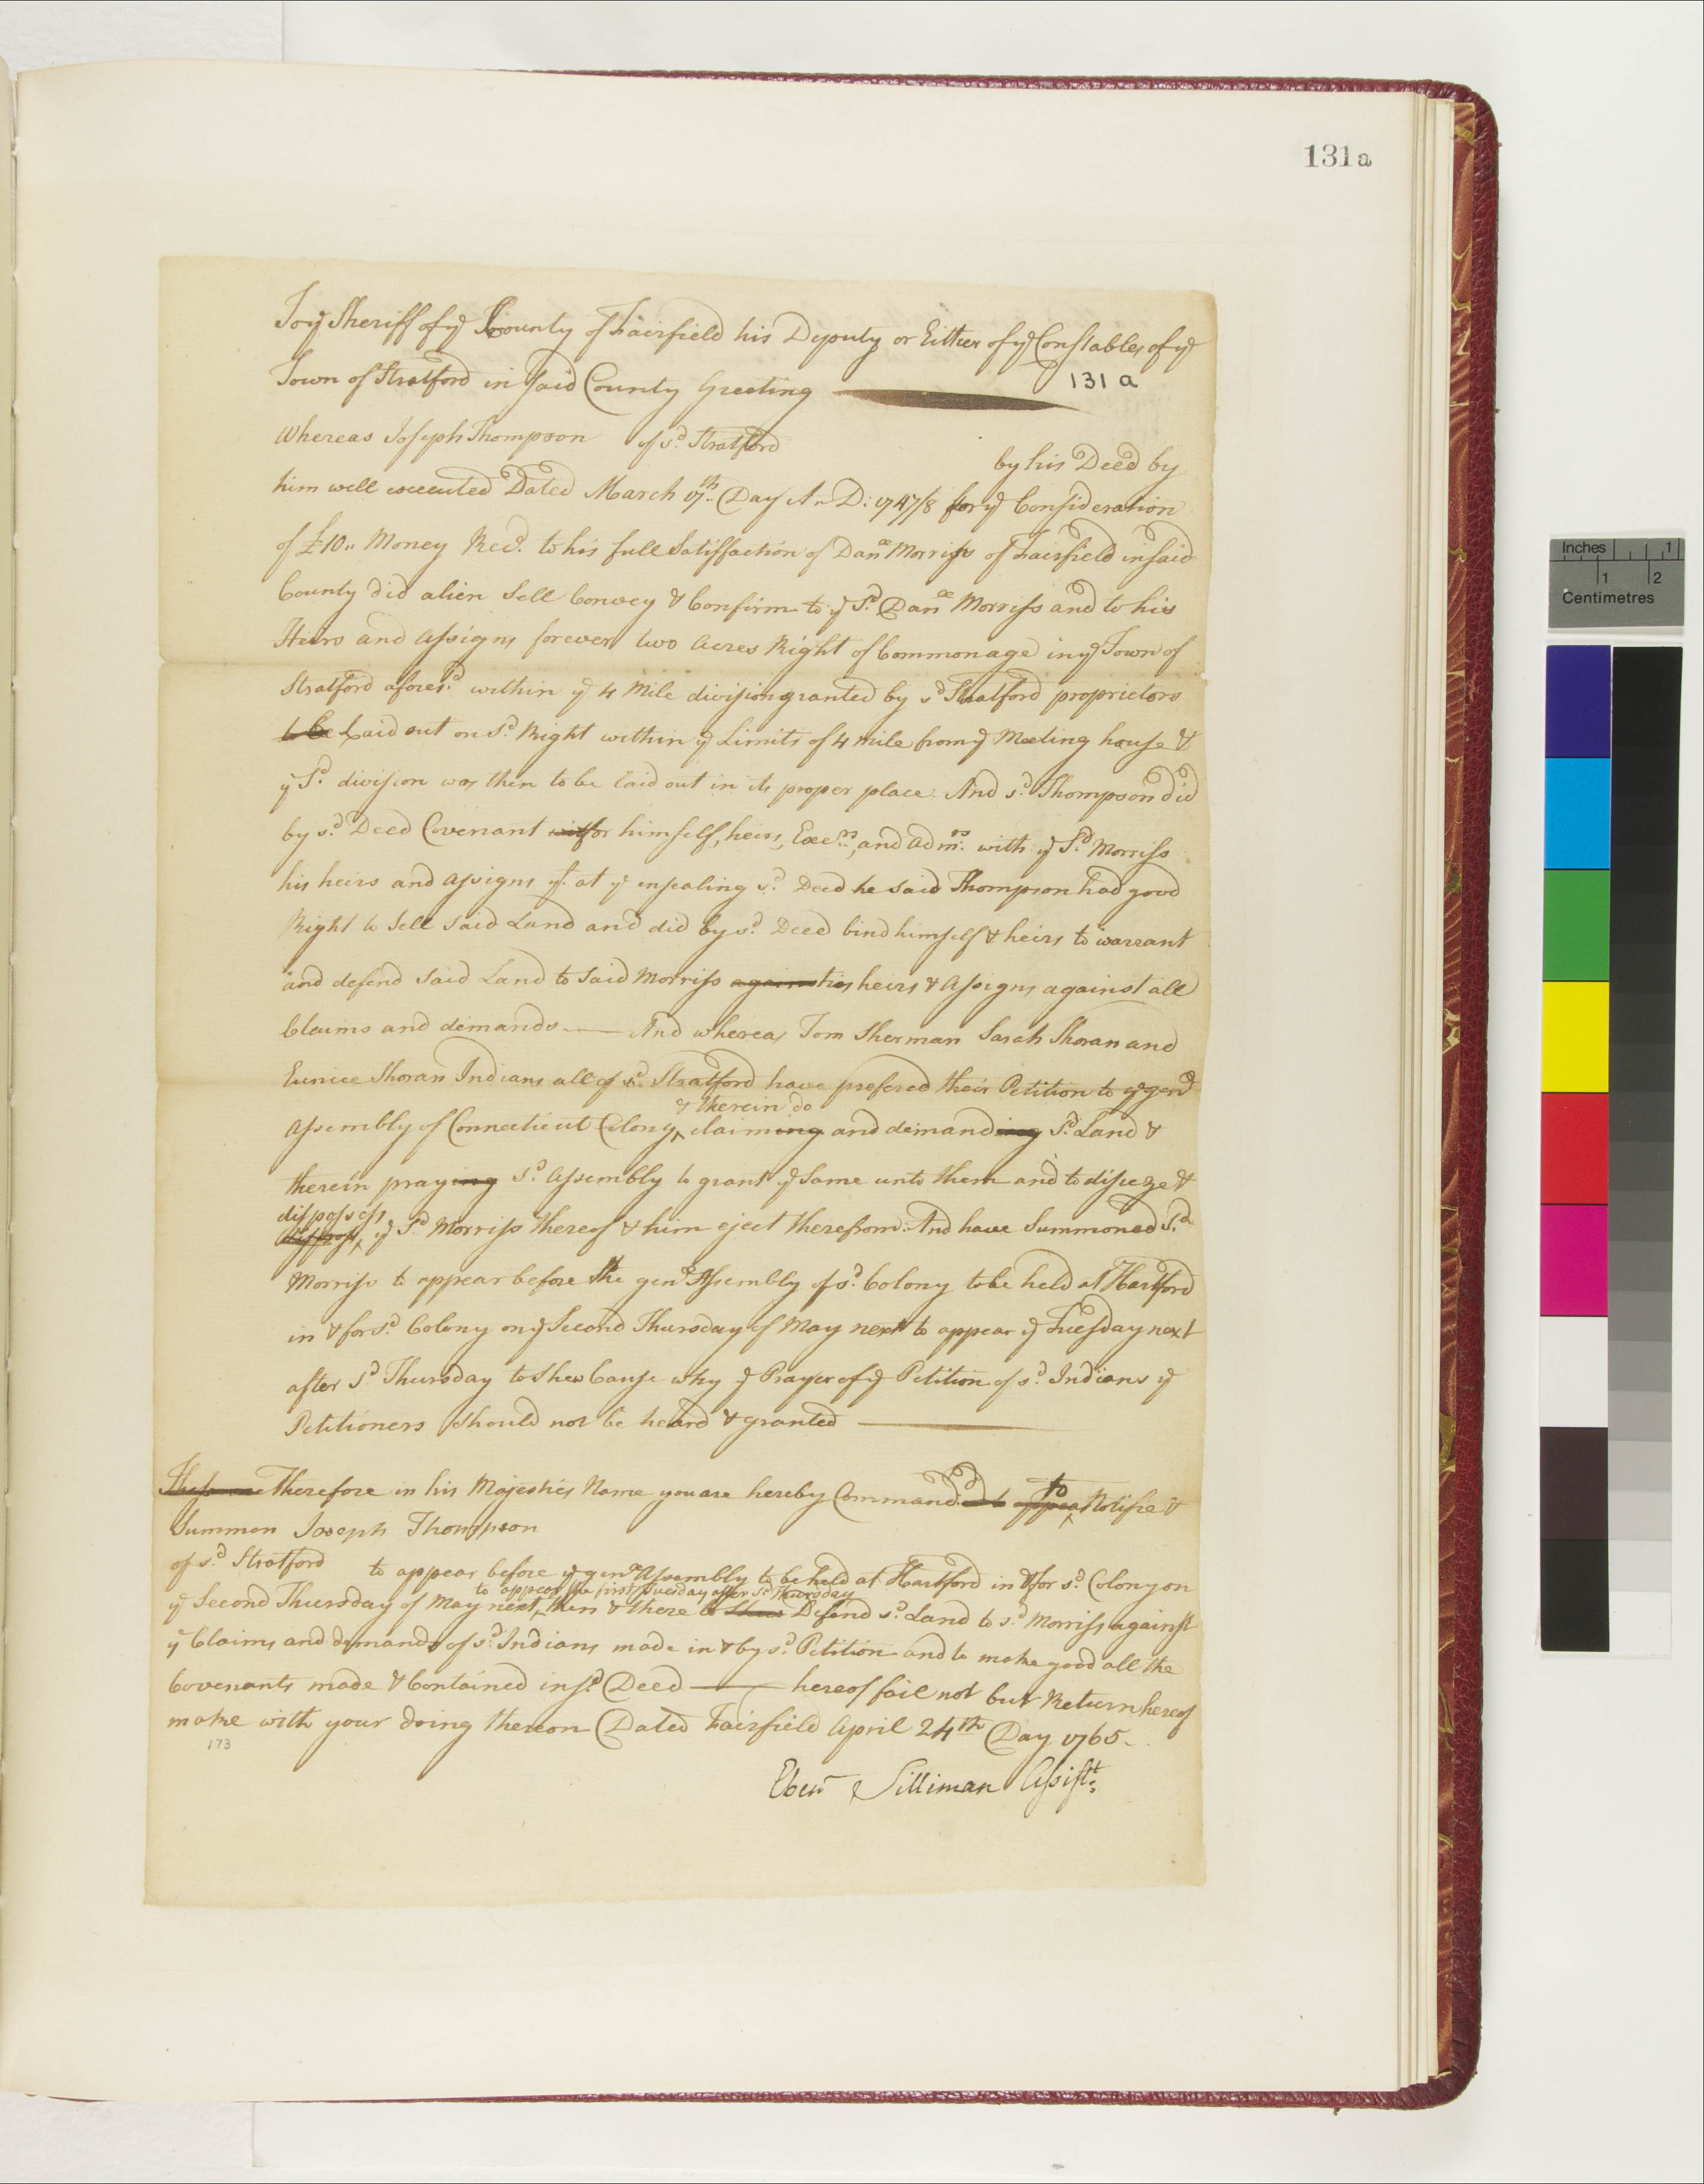 131a
To yͤ Sheriff of yͤ County of Fairfield his Deputy or Either of yͤ Constables of yͤ
Town of Stratford in said County Greeting
131 a
Whereas Joseph Thompson of sᵈ. Stratford
by his Deed by
him well executed Dated March 17ᵗʰ.. Day A..D: 1747/8 for yͤ Consideration
of £10,, Money Recᵈ. to his full Satisfaction of Danˡˡ Morriss of Fairfield in said
County did alien Sell Convey & Confirm to yͤ Sᵈ. Danˡˡ Morriss and to his
Heirs and Assigns forever two Acres Right of Commonage in yͤ Town of
Stratford aforesᵈ. within yͤ 4 Mile division granted by sᵈ Stratford proprietors
to be Laid out on sᵈ. Right within yͤ Limits of 4 mile from yͤ Meeting house &
yͤ Sᵈ. division was then to be laid out in its proper place. And sᵈ. Thompson did
by sᵈ. Deed Covenant wit for himself, heirs, Execʳˢ, and Admʳˢ. with yͤ Sᵈ. Morriss
his heirs and assigns yᵗ. at yͤ ensealing sᵈ. Deed he said Thompson had good
Right to Sell said Land and did by sᵈ. Deed bind himself & heirs to warrant
and defend said Land to said Morriss against his heirs & Assigns against all
Claims and demands —— And whereas Tom Sherman Sarah Shoran and
Eunice Shoran Indians all of sᵈ. Stratford have prefered their Petition to yͤ genˡˡ
& therein do
Assembly of Connecticut Colony ‸ claiming and demanding Sᵈ. Land &
therein praying sᵈ. Assembly to grant yͤ Same unto them and to diseize &
dispossess
‸ yͤ Sᵈ Morriss thereof & him eject therefrom: And have Summoned Sᵈ.
Morriss to appear before the genˡˡ Assembly of sᵈ. Colony to be held at Hartford
in & for sᵈ. Colony on yͤ Second Thursday of May next to appear yͤ Tuesday next
after Sᵈ. Thursday to Shew Cause why yͤ Prayer of yͤ Petition of sᵈ. Indians yͤ
Petitioners Should not be heard & granted ——
Therefore in his Majesties Name you are hereby Commandᵈ. ed to appear ‸ to Notifie &
Summon Joseph Thompson
of sᵈ. Stratford to appear before yͤ genˡˡ Assembly to be held at Hartford in & for sᵈ. Colony on
to appear the first Tuesday after sᵈ. Thursday
yͤ Second Thursday of May next, ‸ then & there to Shew Defend sᵈ. Land to sᵈ. Morriss against
yͤ Claims and demands of sᵈ. Indians made in & by sᵈ. Petition and to make good all the
Covenants made & Contained in sᵈ. Deed —— hereof fail not but Return hereof
make with your doing thereon Dated Fairfield April 24ᵗʰ Day 1765.
173
Ebenʳ Silliman Assistᵗ:
Inches 1
1 2
Centimetres